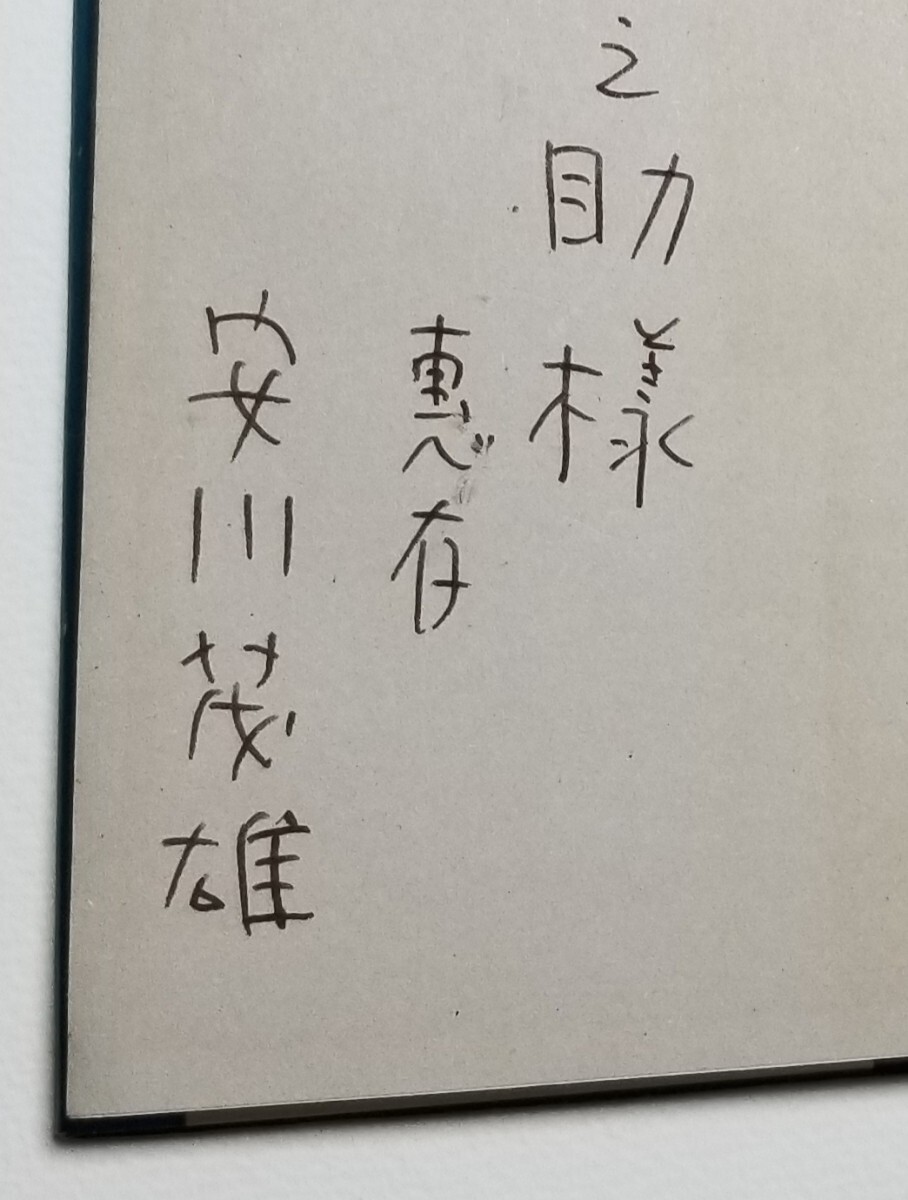 之助様
惠存
安川茂雄